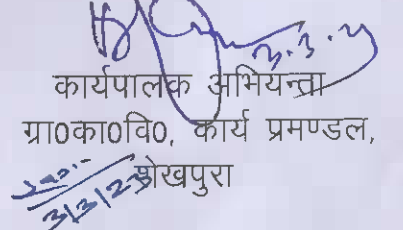 3.3.23
कार्यपालक अभियन्ता
ग्रा0का0वि0, कार्य प्रमण्डल,
शेखपुरा
3/3/23